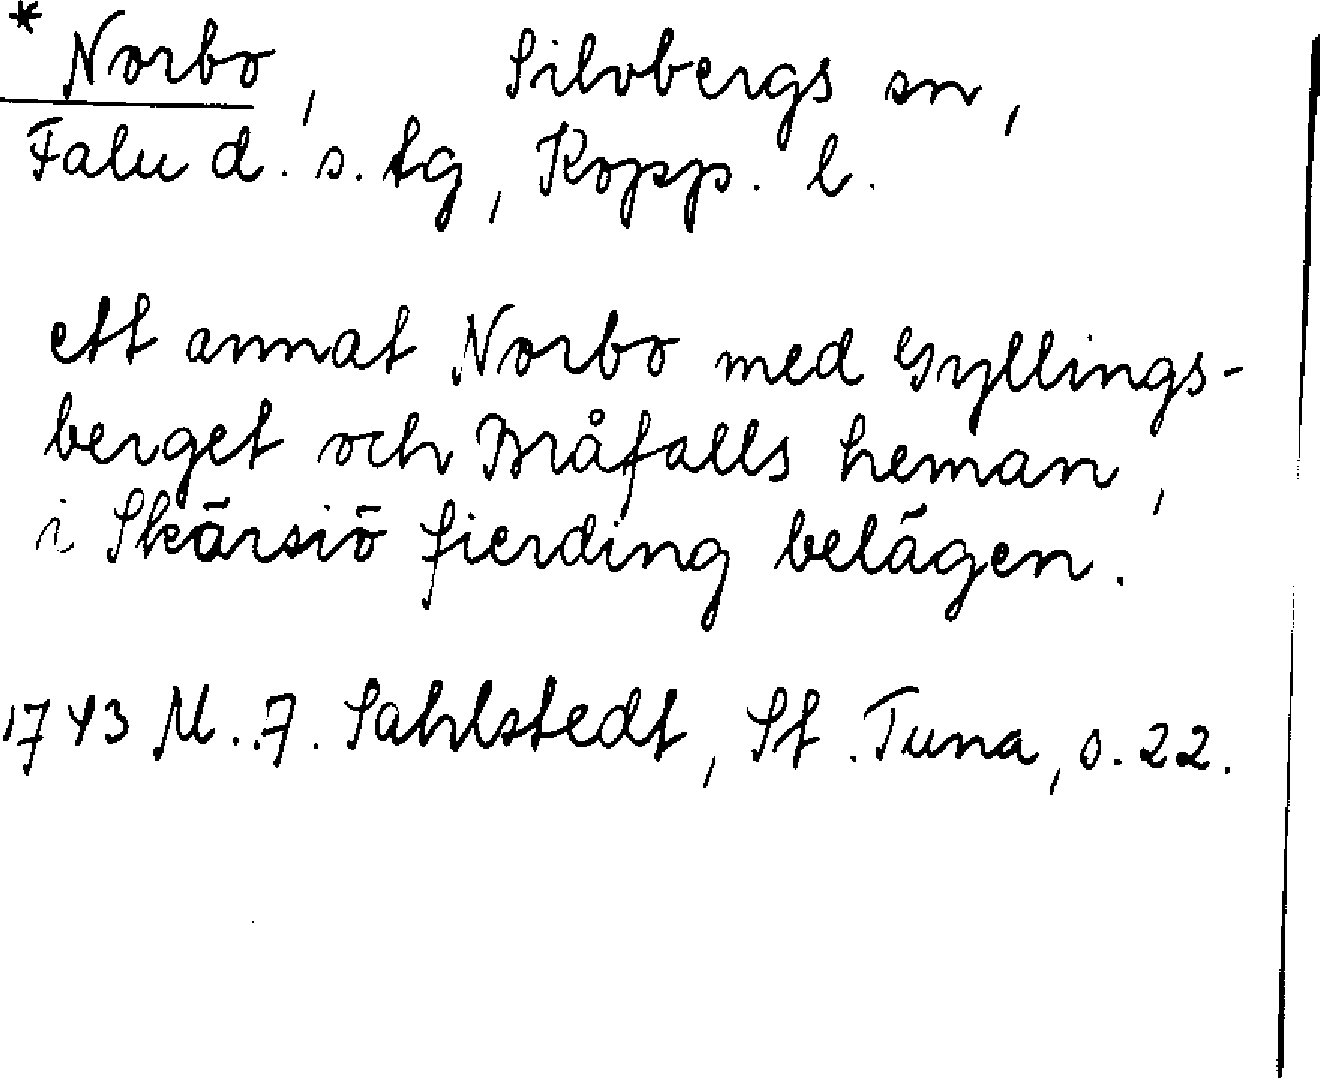 * Norbo, Silvbergs sn,
Falu d. s. tg, Kopp. l.
ett annat Norbo med Gyllings-
berget och Bråfalls heman,
i Skärsiö fierding belägen.
1743 M. F. Sahlstedt, St. Tuna, s. 22.